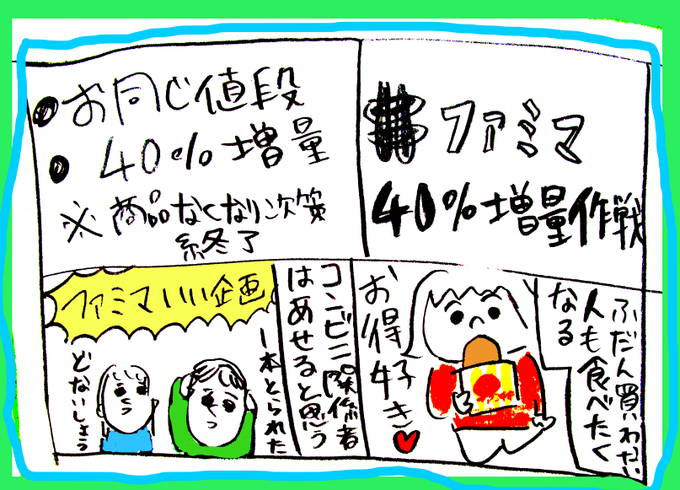 ファミマ
40%増量作戦
・お同じ値段
・40%増量
※商品なくなり次第
終了
ふだん買いわない
人も食べたく
なる
お得好き♥
コンビニ関係者
はあせると思う
ファミマいい企画
一本とられた
どないしよう